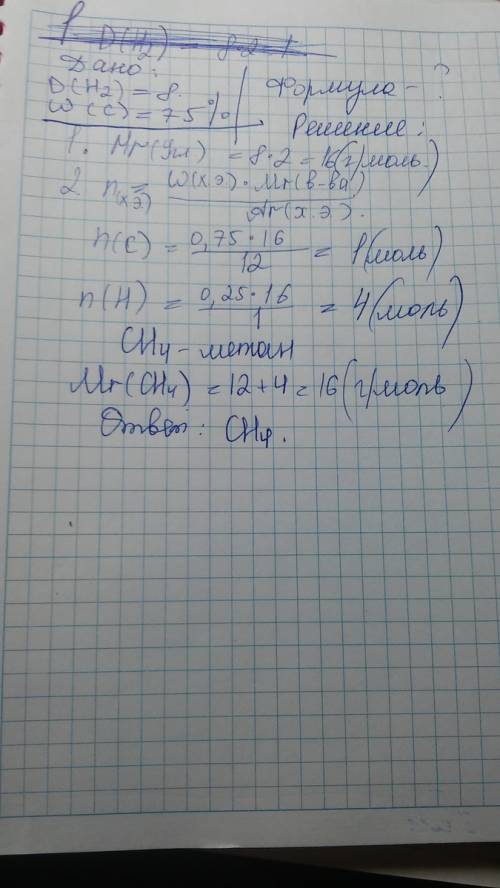 1. D(H₂) = 8·2=1
Дано:
D(H2) = 8.
W(C) = 75%
Формула - ?
Решение:
1. Mr(ул) = 8·2 = 16(г/моль)
2. n(хэ) = W(хэ)·Mr(в-ва) / Ar(х.э).
n(C) = 0,75·16 / 12 = 1(моль)
n(H) = 0,25·16 / 1 = 4(моль)
CH4 - метан
Mr(CH4) = 12+4 = 16(г/моль)
Ответ: CH4.